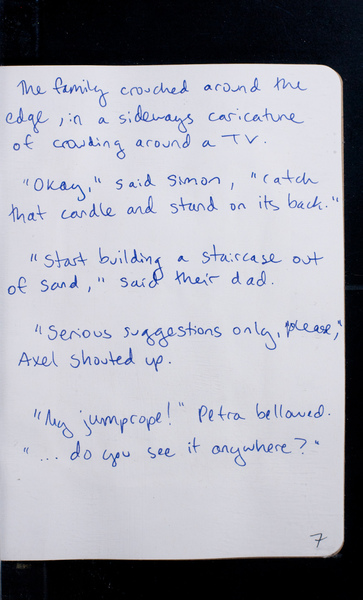 The family crouched around the
edge, in a sideways caricature
of crowding around a TV.
"Okay," said Simon, "catch
that candle and stand on its back."
"Start building a staircase out
of sand," said their dad.
"Serious suggestions only, please,"
Axel shouted up.
"My jumprope!" Petra bellowed.
"... do you see it anywhere?"
7